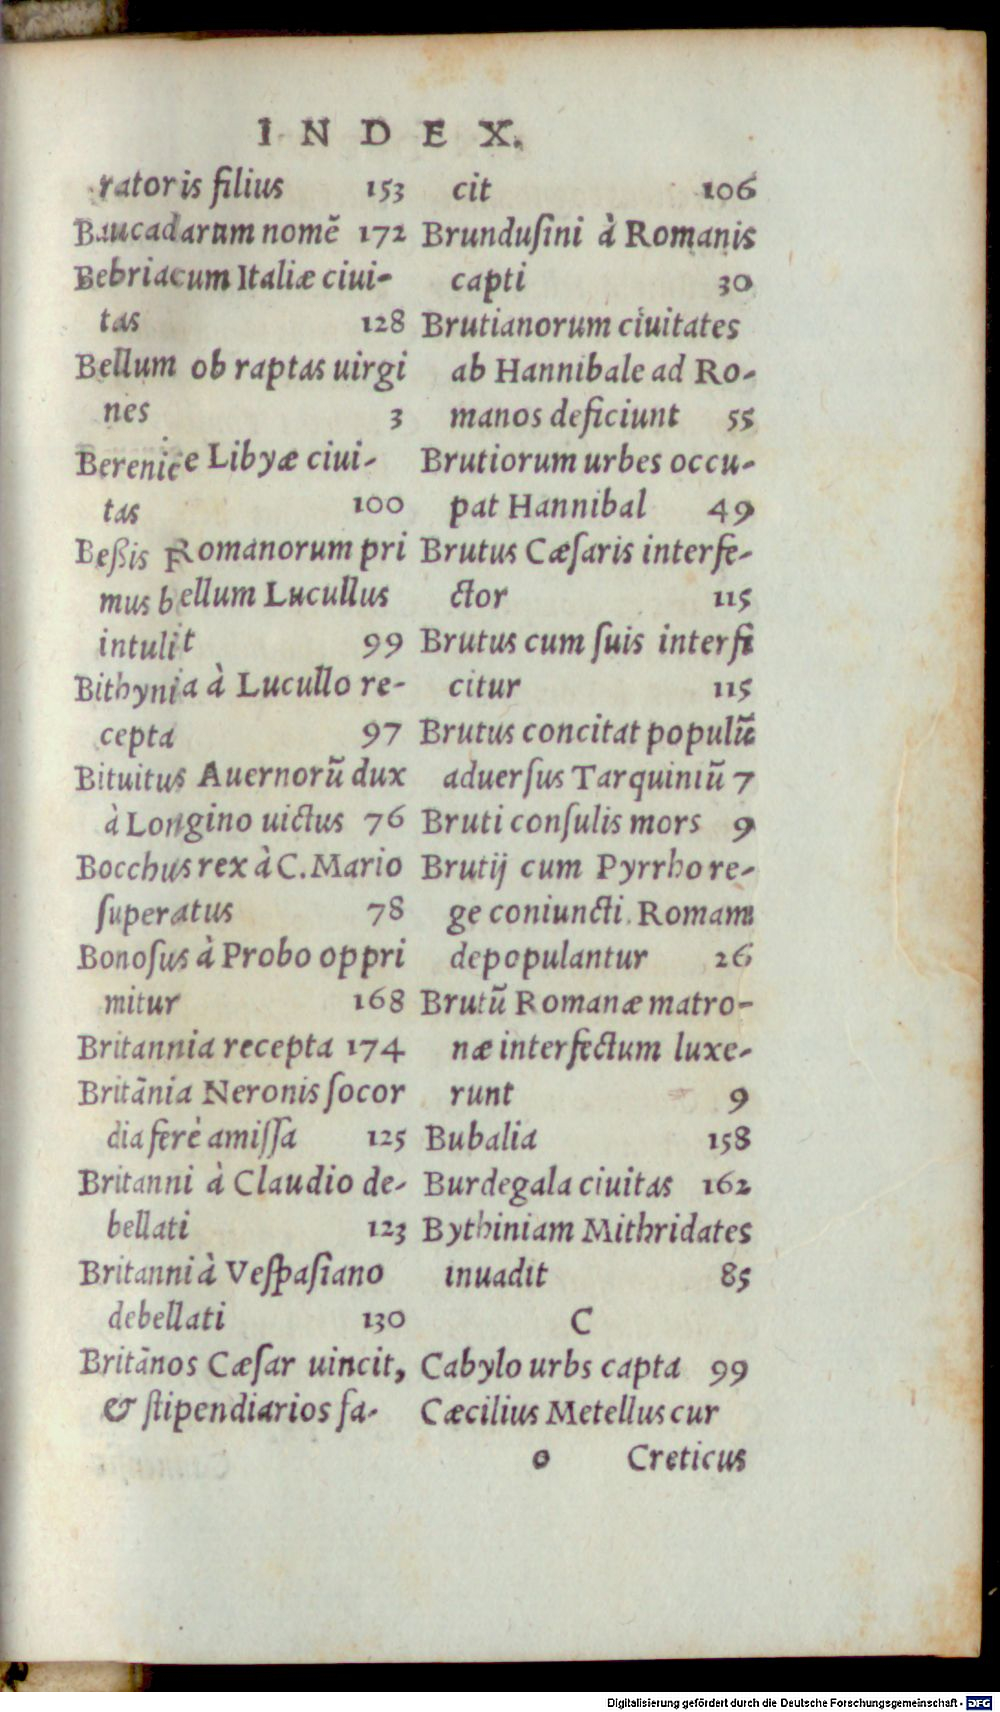 INDEX.
ratoris filius 153
Baucadarum nomẽ 172
Bebriacum Italiæ ciui-
tas 128
Bellum ob raptas uirgi
nes 3
Berenice Libyæ ciui-
tas 100
Beßis Romanorum pri
mus bellum Lucullus
intulit 99
Bithynia à Lucullo re-
cepta 97
Bituitus Auernorũ dux
à Longino uictus 76
Bocchus rex à C. Mario
ſuperatus 78
Bonoſus à Probo oppri
mitur 168
Britannia recepta 174
Britãnia Neronis ſocor
dia ferè amiſſa 125
Britanni à Claudio de-
bellati 123
Britanni à Veſpaſiano
debellati 130
Britãnos Cæſar uincit,
& ſtipendiarios fa-
cit 106
Brunduſini à Romanis
capti 30
Brutianorum ciuitates
ab Hannibale ad Ro-
manos deficiunt 55
Brutiorum urbes occu-
pat Hannibal 49
Brutus Cæſaris interfe-
ctor 115
Brutus cum ſuis interfi
citur 115
Brutus concitat populũ
aduerſus Tarquiniũ 7
Bruti conſulis mors 9
Brutij cum Pyrrho re-
ge coniuncti Romam
depopulantur 26
Brutũ Romanæ matro-
næ interfectum luxe-
runt 9
Bubalia 158
Burdegala ciuitas 162
Bythiniam Mithridates
inuadit 85
C
Cabylo urbs capta 99
Cæcilius Metellus cur
o Creticus
Digitalisierung gefördert durch die Deutsche Forschungsgemeinschaft - DFG